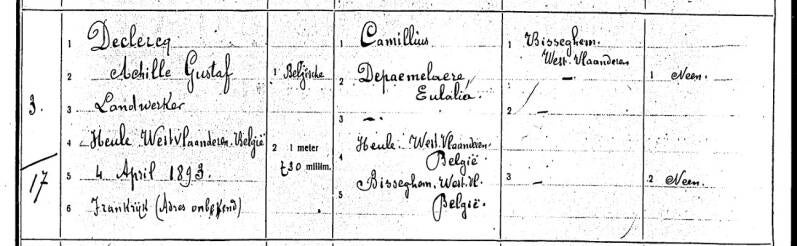 3.
17
1 Declercq
2 Achille Gustaf
3 Landwerker
4 Heule West Vlaanderen. België
5 4 April 1893.
6 Frankrijk (Adres onbekend)
1 Belgische
2 1 meter
730 millim.
1 Camillius
2 Depaemelaere,
Eulalia.
3 —
4 Heule West. Vlaandren.
België.
5 Bisseghem. West. Vl.
België.
1 Bisseghem.
West. Vlaanderen
—
2 —
3 —
1 Neen.
2 Neen.